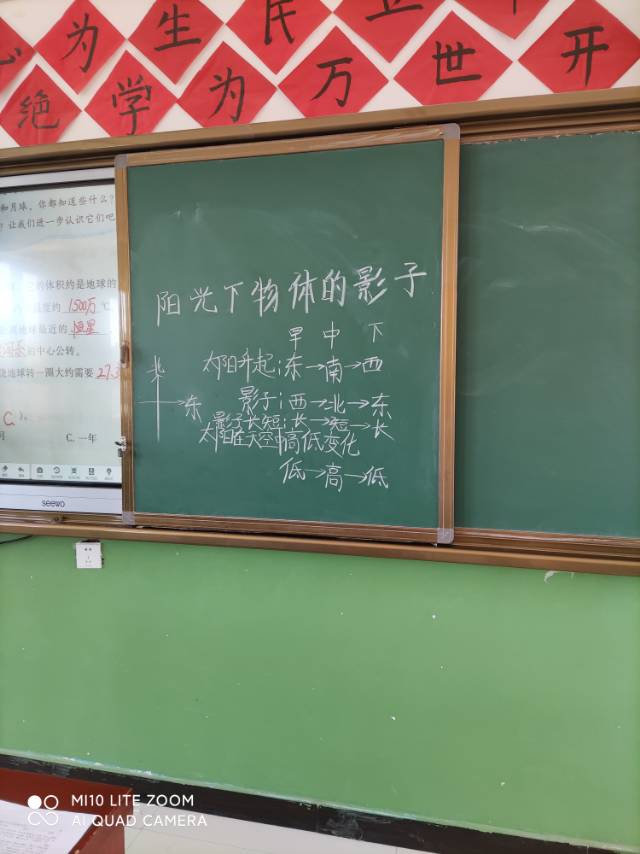 心为生民立
绝学为万世开
和月球,你都知道些什么?
让我们进一步认识它们吧
的体积约是地球的
度约1500万℃
地球最近的恒星
的中心公转。
绕地球转一圈大约需要27.3
C.
月 C.一年
seewo
阳光下物体的影子
早 中 下
太阳升起:东→南→西
北
东
影子:西→北→东
影子长短:长→短→长
太阳在天空中高低变化
低→高→低
MI10 LITE ZOOM
AI QUAD CAMERA